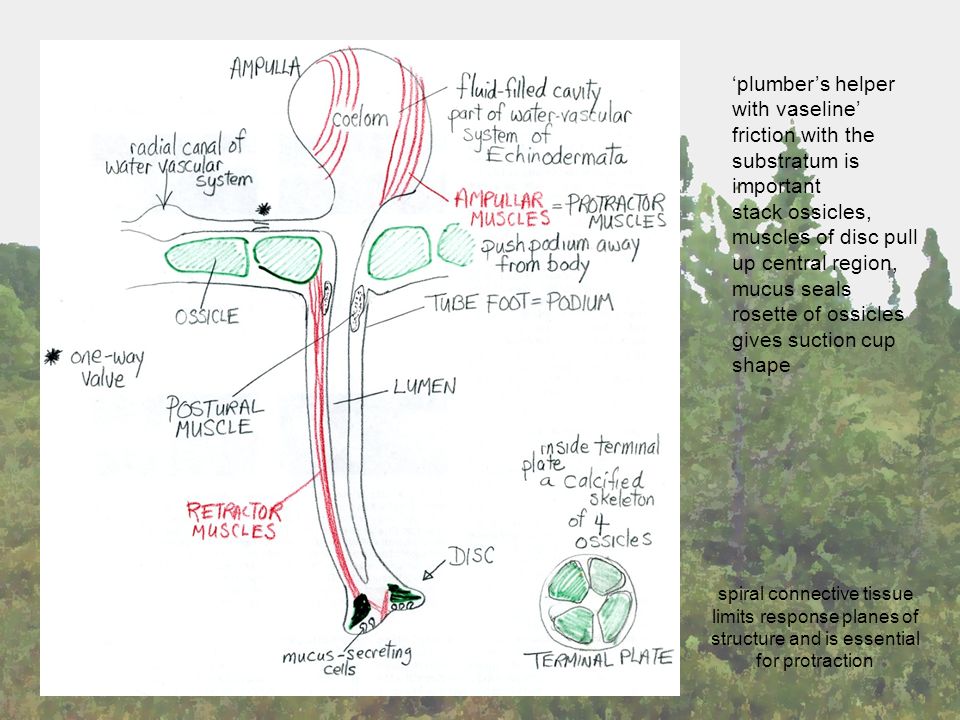 AMPULLA
coelom
fluid-filled cavity
part of water-vascular
system of
Echinodermata
radial canal of
water vascular
system
*
AMPULLAR = PROTRACTOR
MUSCLES MUSCLES
push podium away
from body
OSSICLE
TUBE FOOT = PODIUM
* one-way
valve
LUMEN
POSTURAL
MUSCLE
RETRACTOR
MUSCLES
DISC
mucus-secreting
cells
inside terminal
plate
a calcified
skeleton
of 4
ossicles
TERMINAL PLATE
‘plumber’s helper
with vaseline’
friction with the
substratum is
important
stack ossicles,
muscles of disc pull
up central region,
mucus seals
rosette of ossicles
gives suction cup
shape
spiral connective tissue
limits response planes of
structure and is essential
for protraction